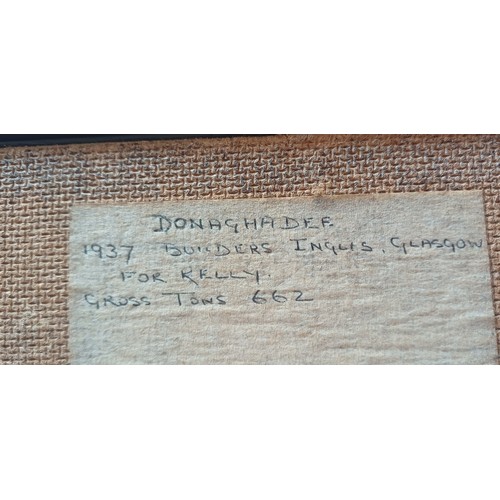 DONAGHADEE
1937 BUILDERS INGLIS, GLASGOW
FOR KELLY.
GROSS TONS 662